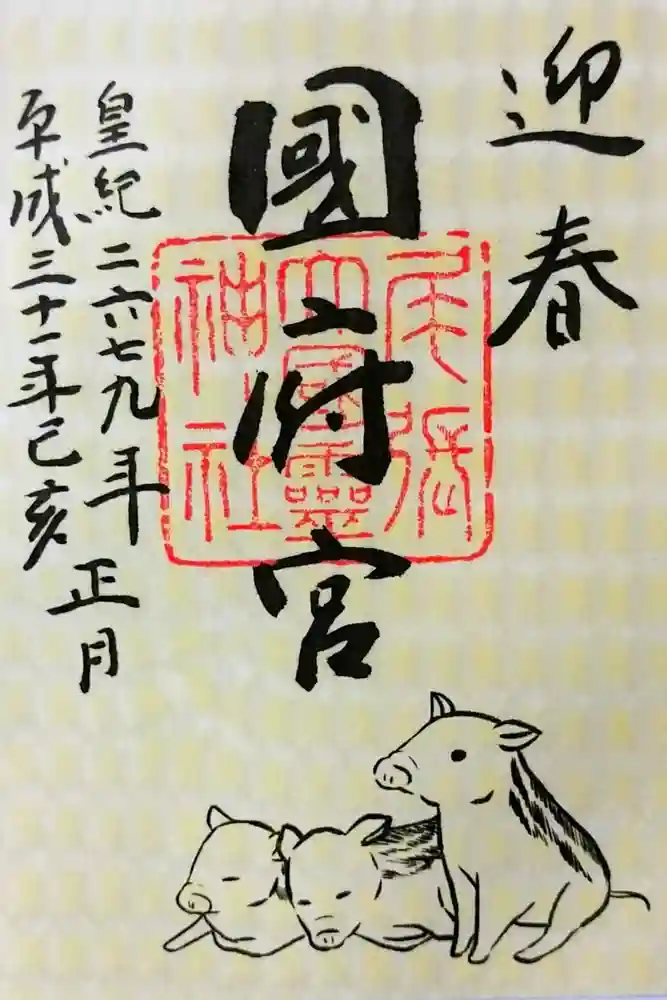 迎春
國府宮
尾張
大國靈
神社
皇紀二六七九年正月
平成三十一年己亥